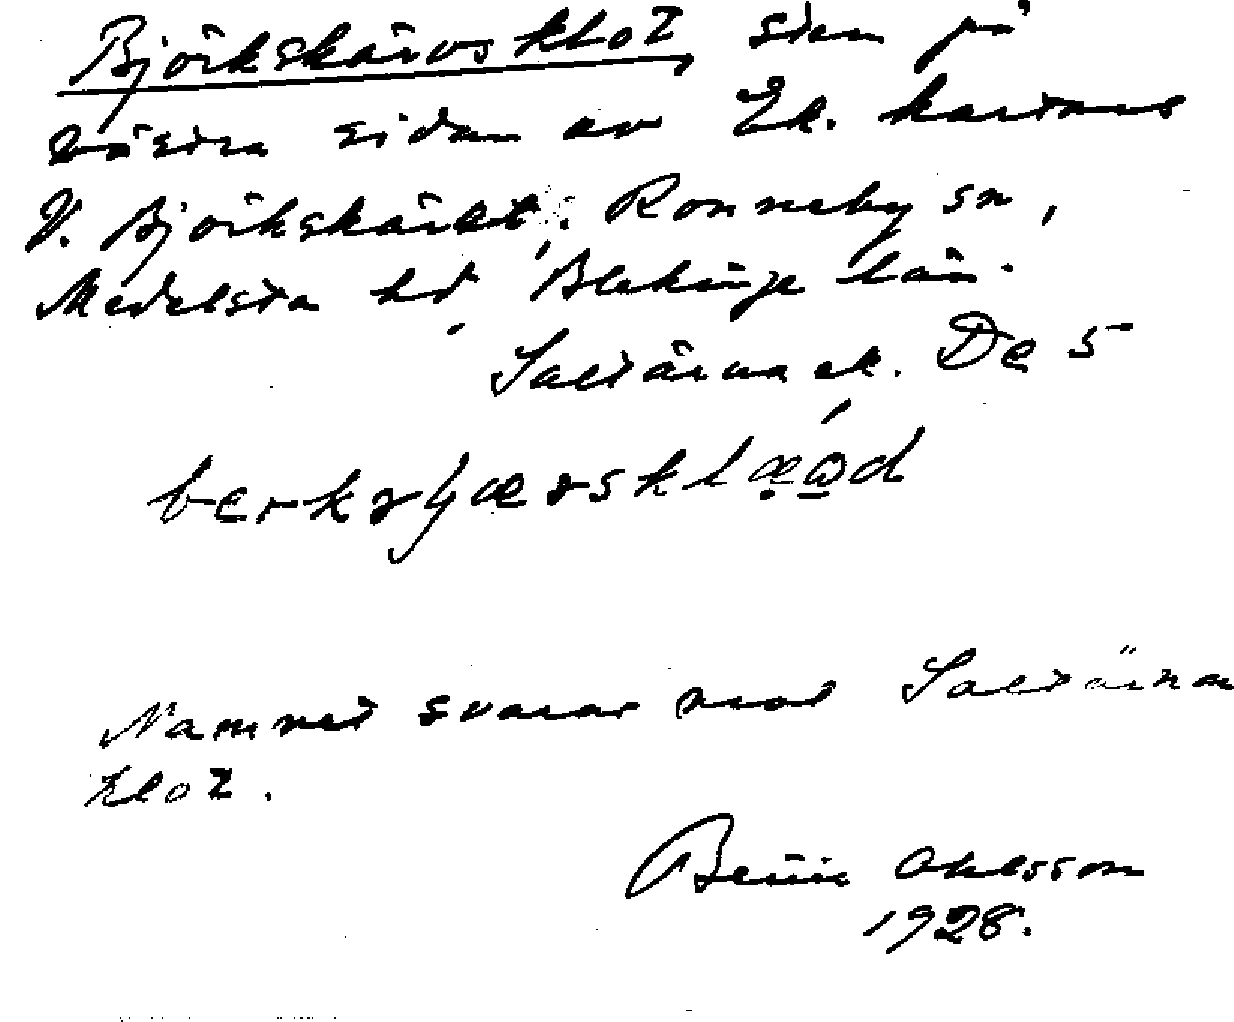 Björkskärvs klot, sten på
västra sidan av Ek. kartans
V. Björkskärkt, Ronneby sn,
Medelsta hd, Blekinge län.
Saltärna ek. De 5
Namnet svarar mot Saltärna
klot.
Bertil Ohlsson
1928.